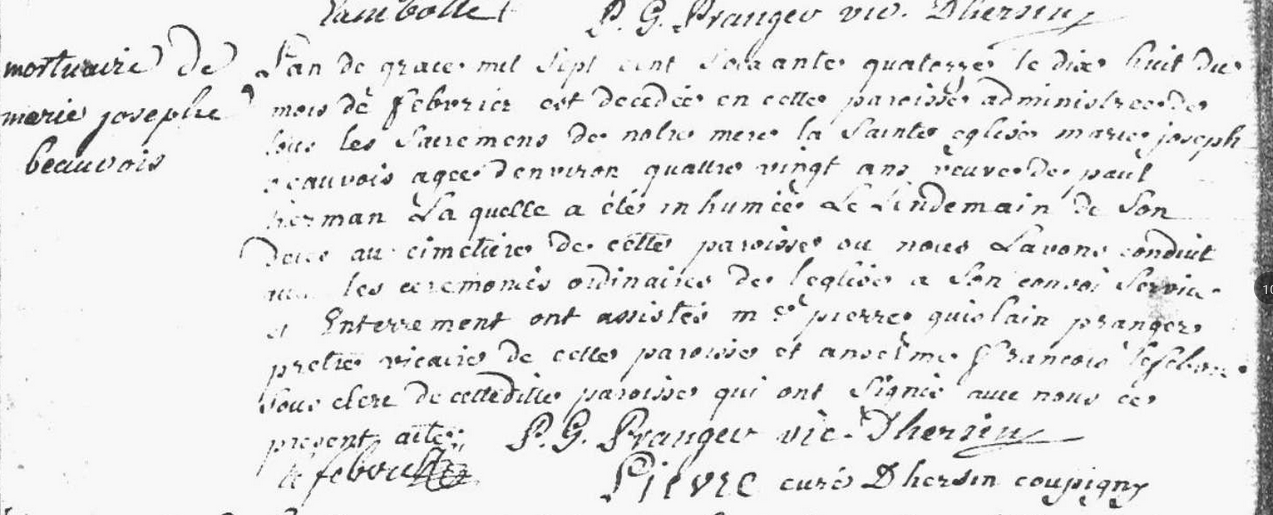 P. G. Pranger vic. Dhersin
mortuaire de
marie josephe
beauvois
Lan de grace mil sept cent soixante quatorze le dix huit du
mois de febvrier est decedée en cette paroisse administree de
tous les sacremens de notre mere la sainte eglise marie joseph
beauvois agee denviron quattre vingt ans veuve de paul
herman Laquelle a étés inhumée Le Lendemain de son
deces au cimetiere de cette paroisse ou nous Lavons conduit
avec les ceremonies ordinaires de leglise a son convoi service
et Enterrement ont assistés mre pierre guislain pranger
pretre vicaire de cette paroisse et anselme francois lefebvre
sous clerc de cetteditte paroisse qui ont signé avec nous ce
present acte P. G. Pranger vic. Dhersin
lefebvre
Pievre curé Dhersin coupigny